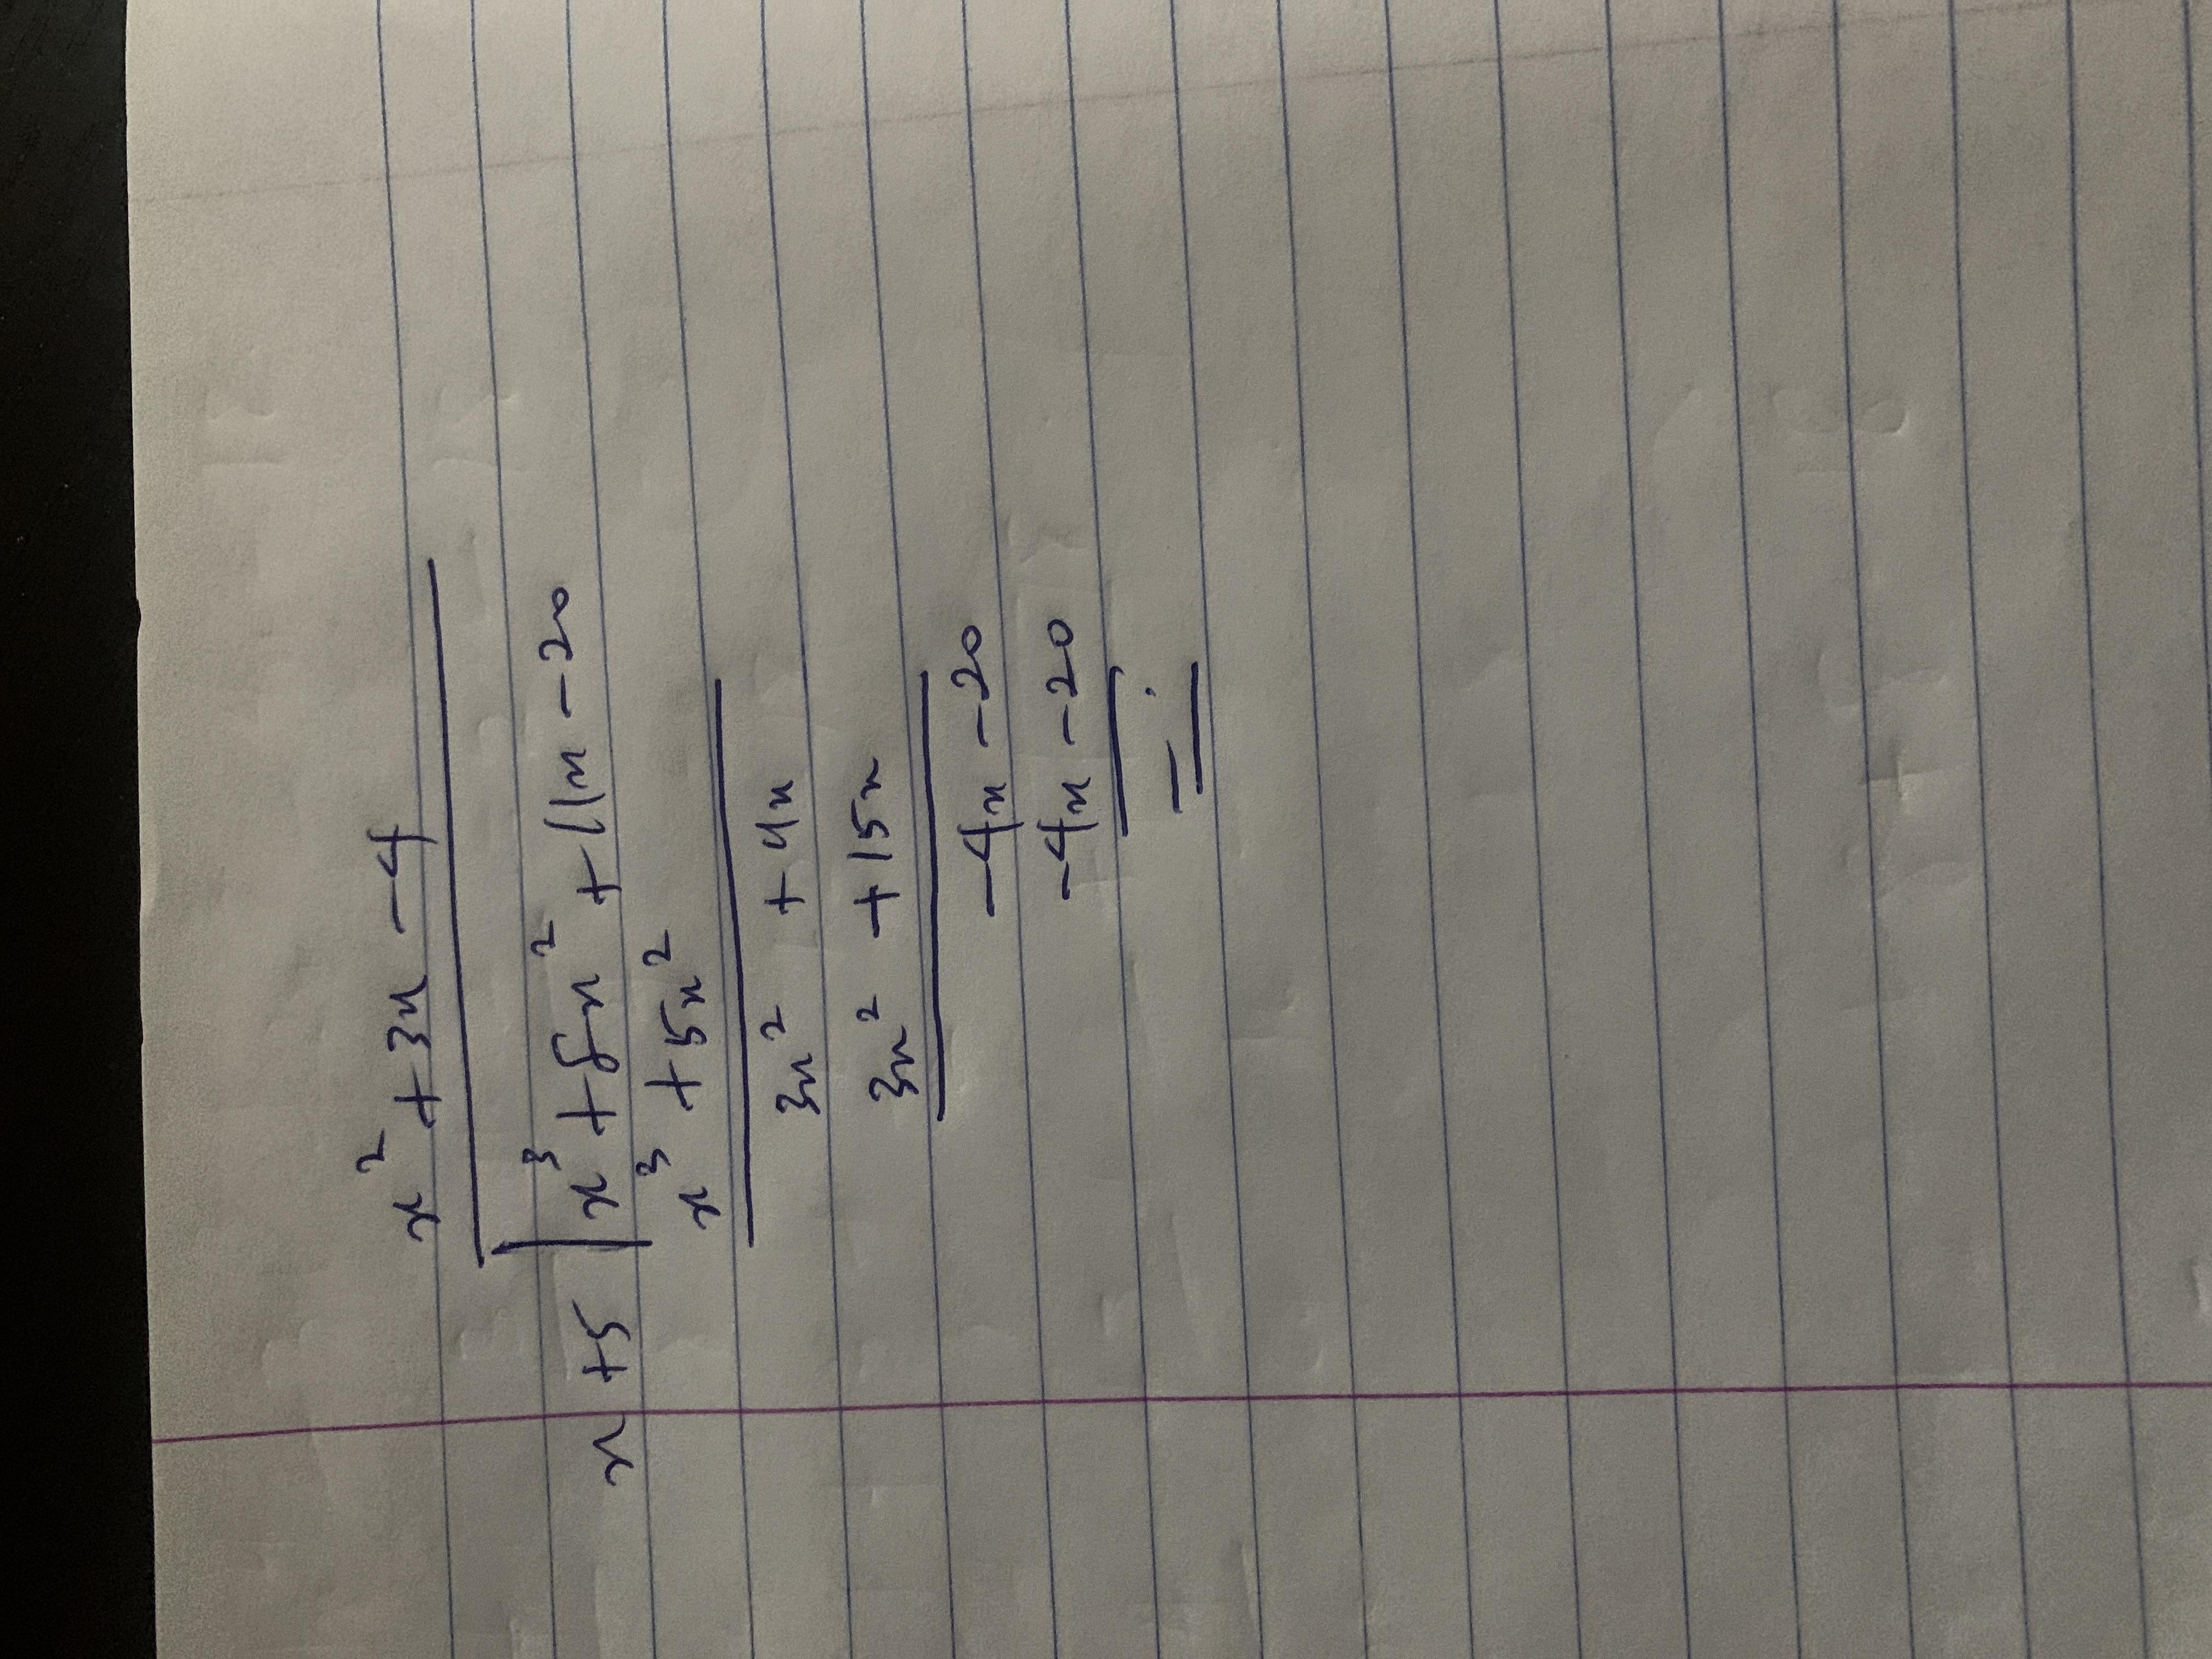 x² + 3x - 4
x + 5 | x³ + 8x² + 11x - 20
x³ + 5x²
3x² + 11x
3x² + 15x
-4x - 20
-4x - 20